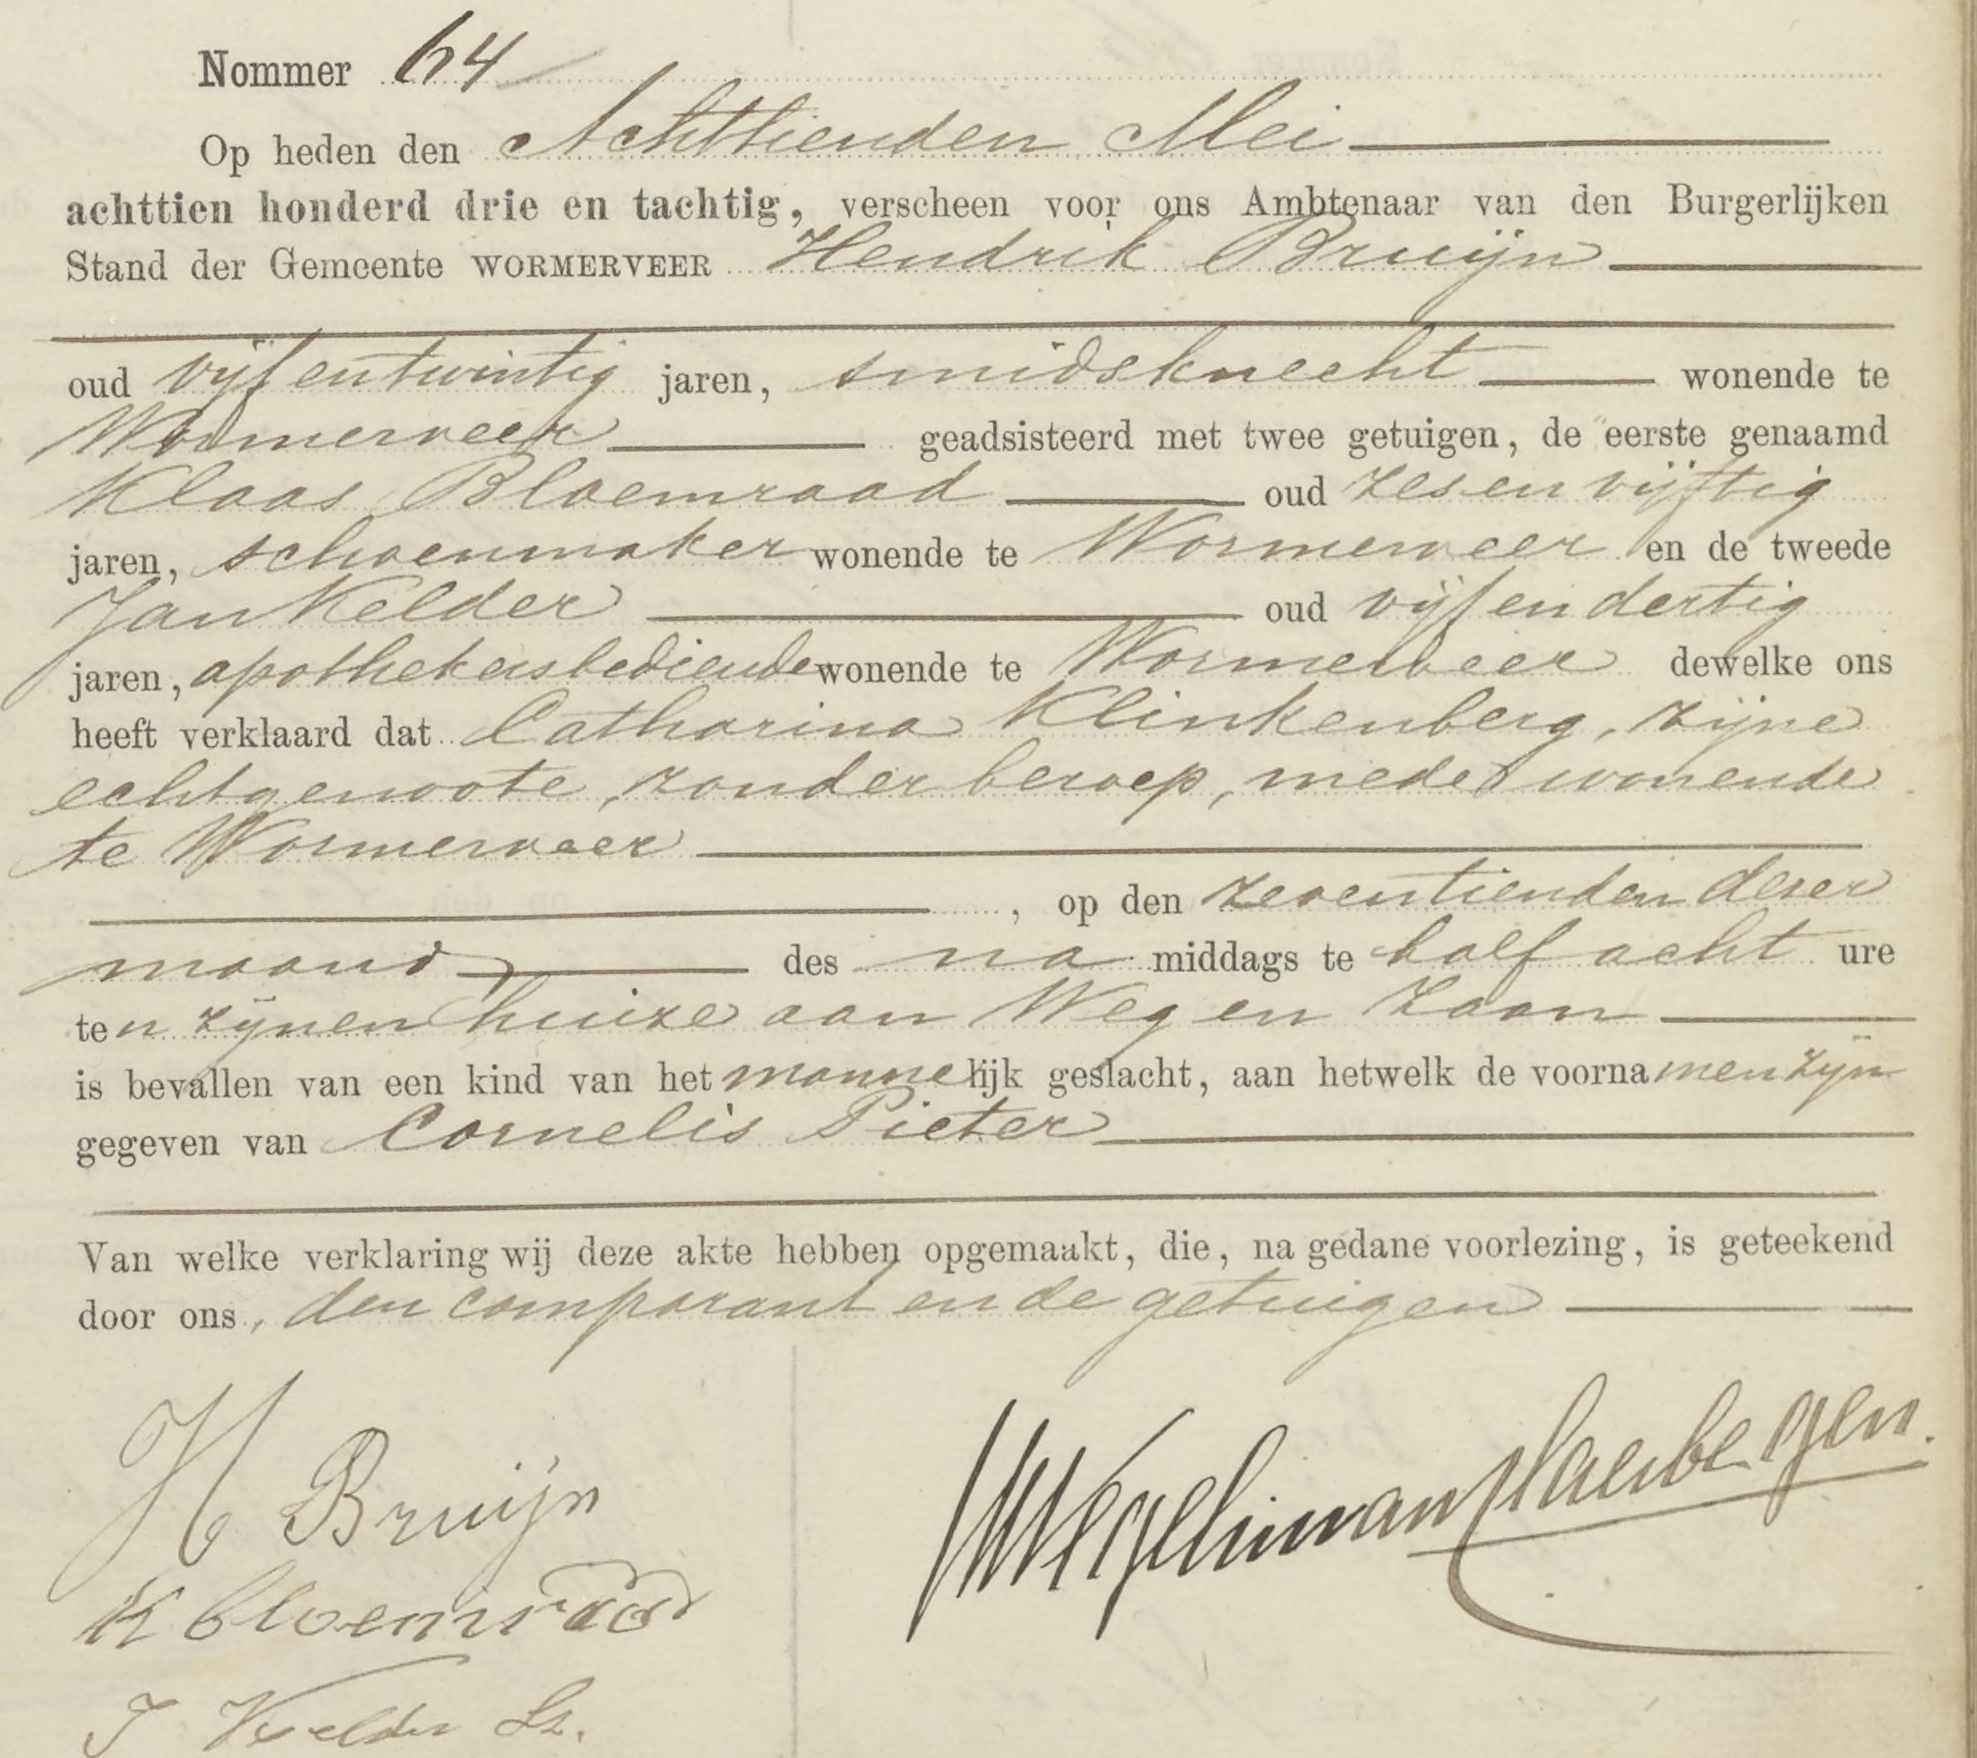 Nommer 64
Op heden den Achttienden Mei
achttien honderd drie en tachtig, verscheen voor ons Ambtenaar van den Burgerlijken
Stand der Gemeente WORMERVEER Hendrik Bruijn
oud vijf en twintig jaren, smidsknecht wonende te
Wormerveer geadsisteerd met twee getuigen, de eerste genaamd
Klaas Bloemraad oud zes en vijftig
jaren, schoenmaker wonende te Wormerveer en de tweede
Jan Kelder oud vijf en dertig
jaren, apothekersbediende wonende te Wormerveer dewelke ons
heeft verklaard dat Catharina Klinkenberg, zijne
echtgenoote, zonder beroep, mede wonende
te Wormerveer
, op den zeventienden dezer
maand des na middags te half acht ure
ten zijnen huize aan Weg en Zaan
is bevallen van een kind van het mannelijk geslacht, aan hetwelk de voornamen zijn
gegeven van Cornelis Pieter
Van welke verklaring wij deze akte hebben opgemaakt, die, na gedane voorlezing, is geteekend
door ons, den comparant en de getuigen
H Bruijn
K Bloemraad
J Kelder